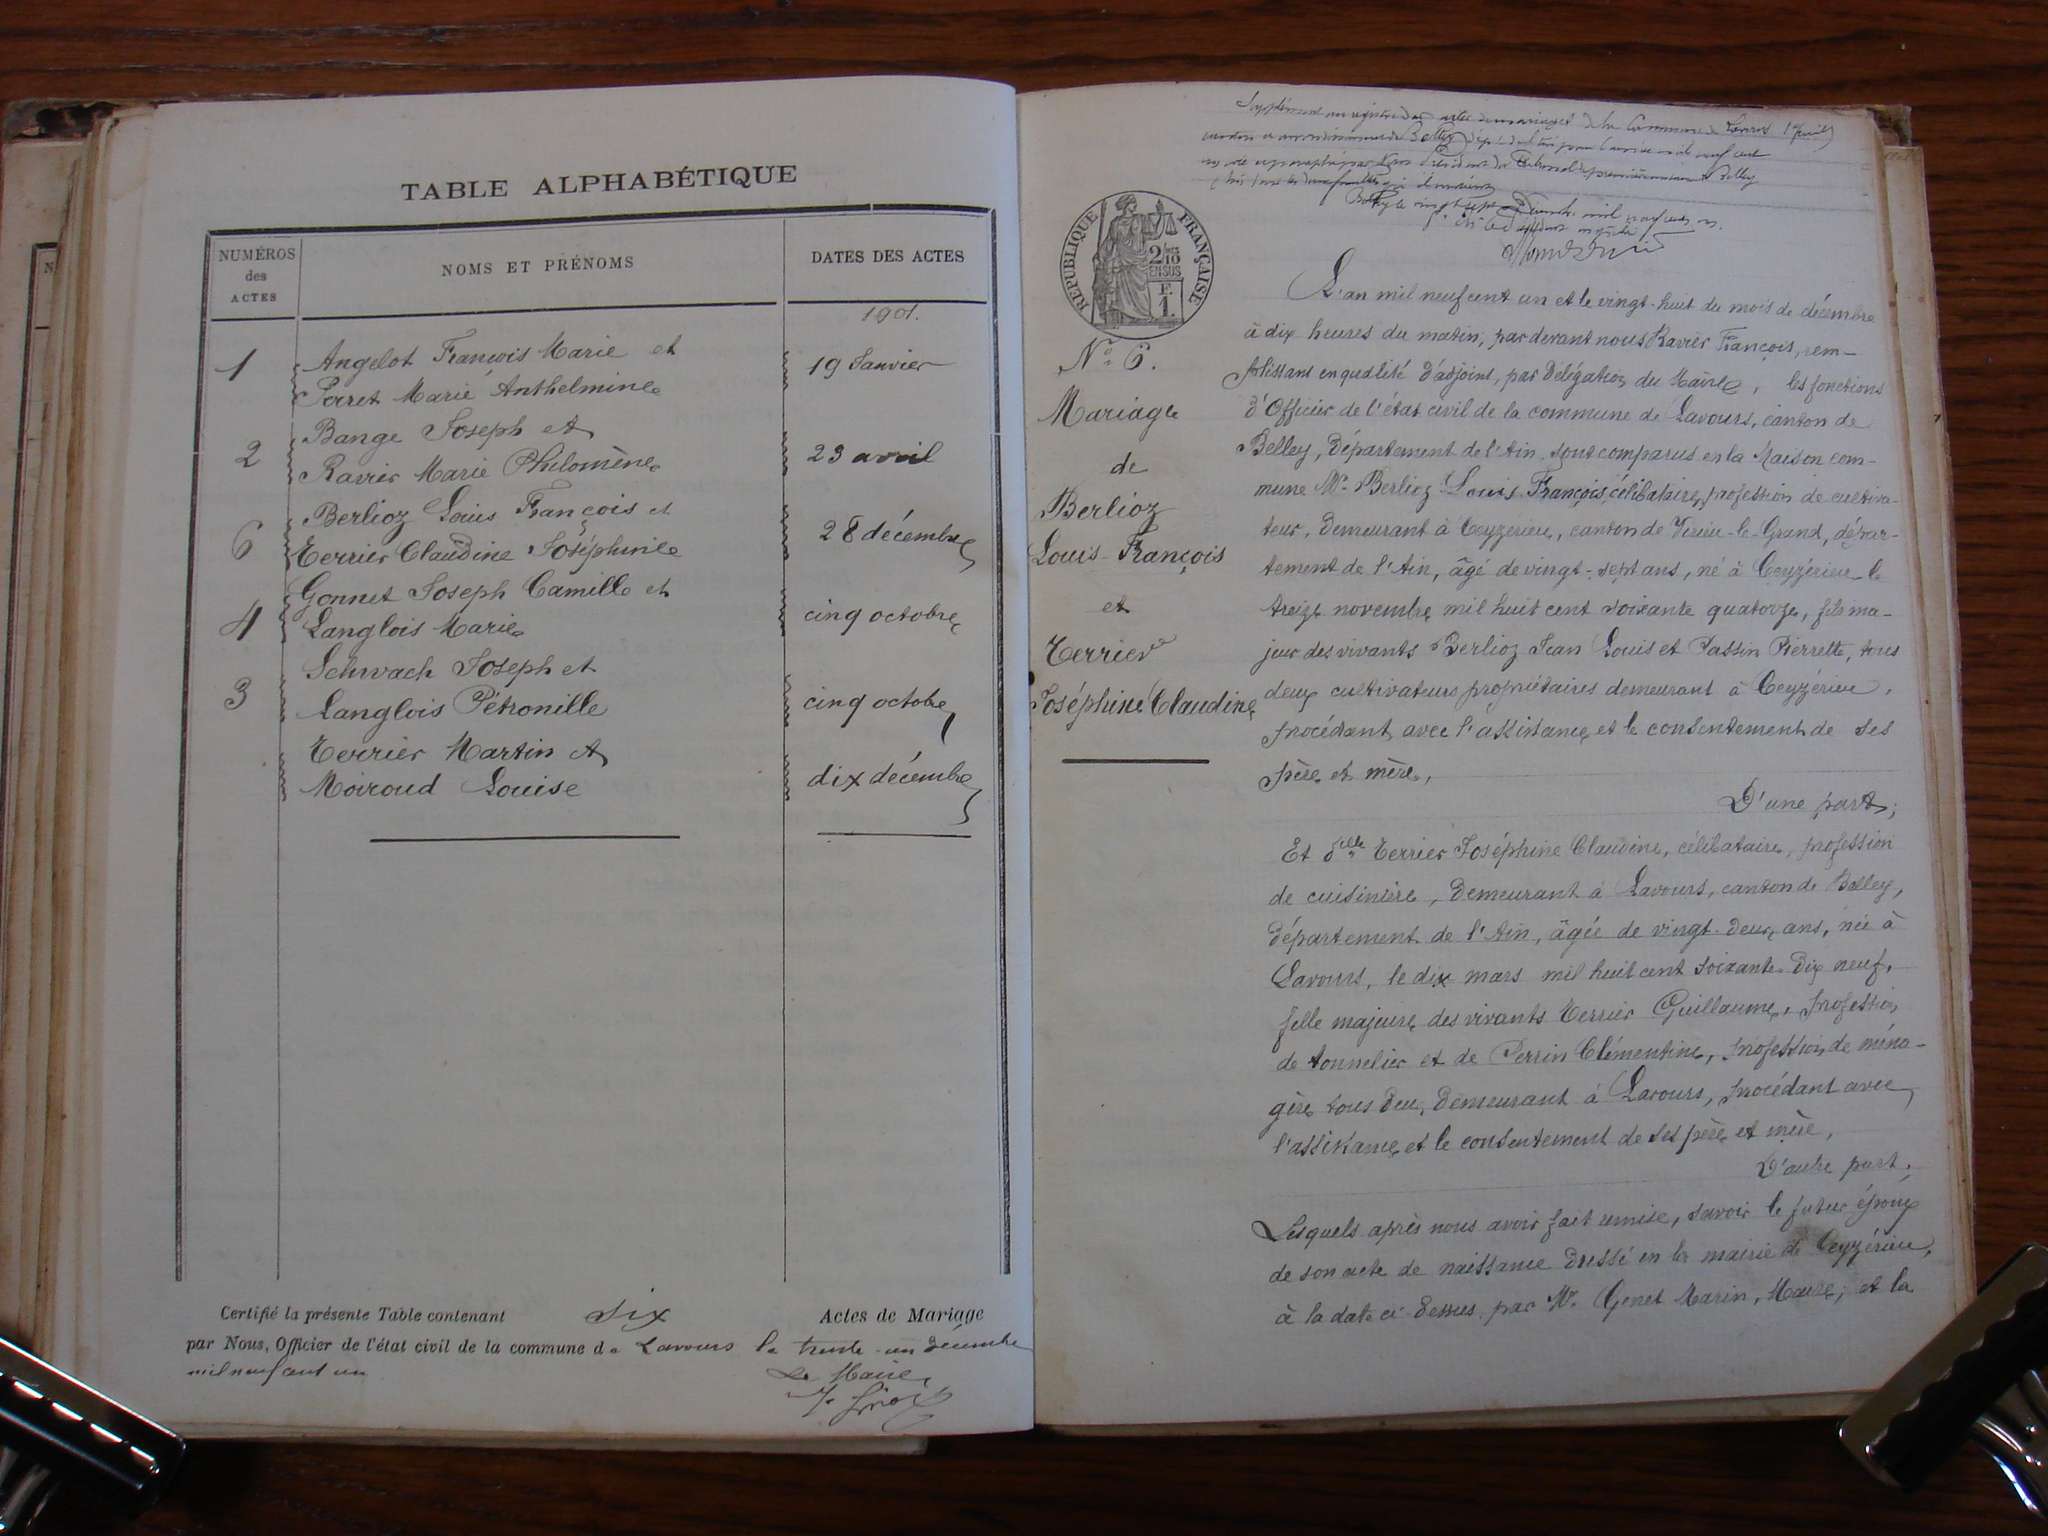 TABLE ALPHABÉTIQUE
NUMÉROS
des
ACTES
NOMS ET PRÉNOMS
DATES DES ACTES
1901.
1
Angelot François Marie et
19 Janvier
Perret Marie Anthelmine
2
Bange Joseph et
23 avril
Ravier Marie Philomène
6
Berlioz Louis François et
28 décembre
Terrier Claudine Joséphine
4
Gonnet Joseph Camille et
cinq octobre
Langlois Marie
3
Schwach Joseph et
cinq octobre
Langlois Pétronille
Terrier Martin et
dix décembre
Moiroud Louise
Certifié la présente Table contenant six Actes de Mariage
par Nous, Officier de l'état civil de la commune de Lavours le trente-un décembre
mil neuf cent un
Le Maire,
RÉPUBLIQUE FRANÇAISE
2/10
EN SUS
F.
1.
No 6.
Mariage
de
Berlioz
Louis-François
et
Terrier
Joséphine Claudine
L'an mil neuf cent un et le vingt-huit du mois de décembre
à dix heures du matin, par devant nous Ravier François, rem-
plissant en qualité d'adjoint, par délégation du Maire, les fonctions
d'Officier de l'état civil de la commune de Lavours, canton de
Belley, Département de l'Ain, sont comparus en la Maison com-
mune Mr. Berlioz Louis François, célibataire, profession de cultiva-
teur, demeurant à Ceyzérieu, canton de Virieu-le-Grand, dépar-
tement de l'Ain, âgé de vingt-sept ans, né à Ceyzérieu le
treize novembre mil huit cent soixante quatorze, fils ma-
jeur des vivants Berlioz Jean Louis et Passin Pierrette, tous
deux cultivateurs propriétaires demeurant à Ceyzérieu,
procédant avec l'assistance et le consentement de ses
père et mère,
D'une part;
Et dlle Terrier Joséphine Claudine, célibataire, profession
de cuisinière, demeurant à Lavours, canton de Belley,
département de l'Ain, âgée de vingt-deux ans, née à
Lavours, le dix mars mil huit cent soixante dix neuf,
fille majeure des vivants Terrier Guillaume, profession
de tonnelier et de Perrin Clémentine, profession de ména-
gère tous deux demeurant à Lavours, procédant avec
l'assistance et le consentement de ses père et mère,
D'autre part.
Lesquels après nous avoir fait remise, savoir le futur époux
de son acte de naissance dressé en la mairie de Ceyzérieu,
à la date ci-dessus par Mr. Genet Marin, Maire; et la